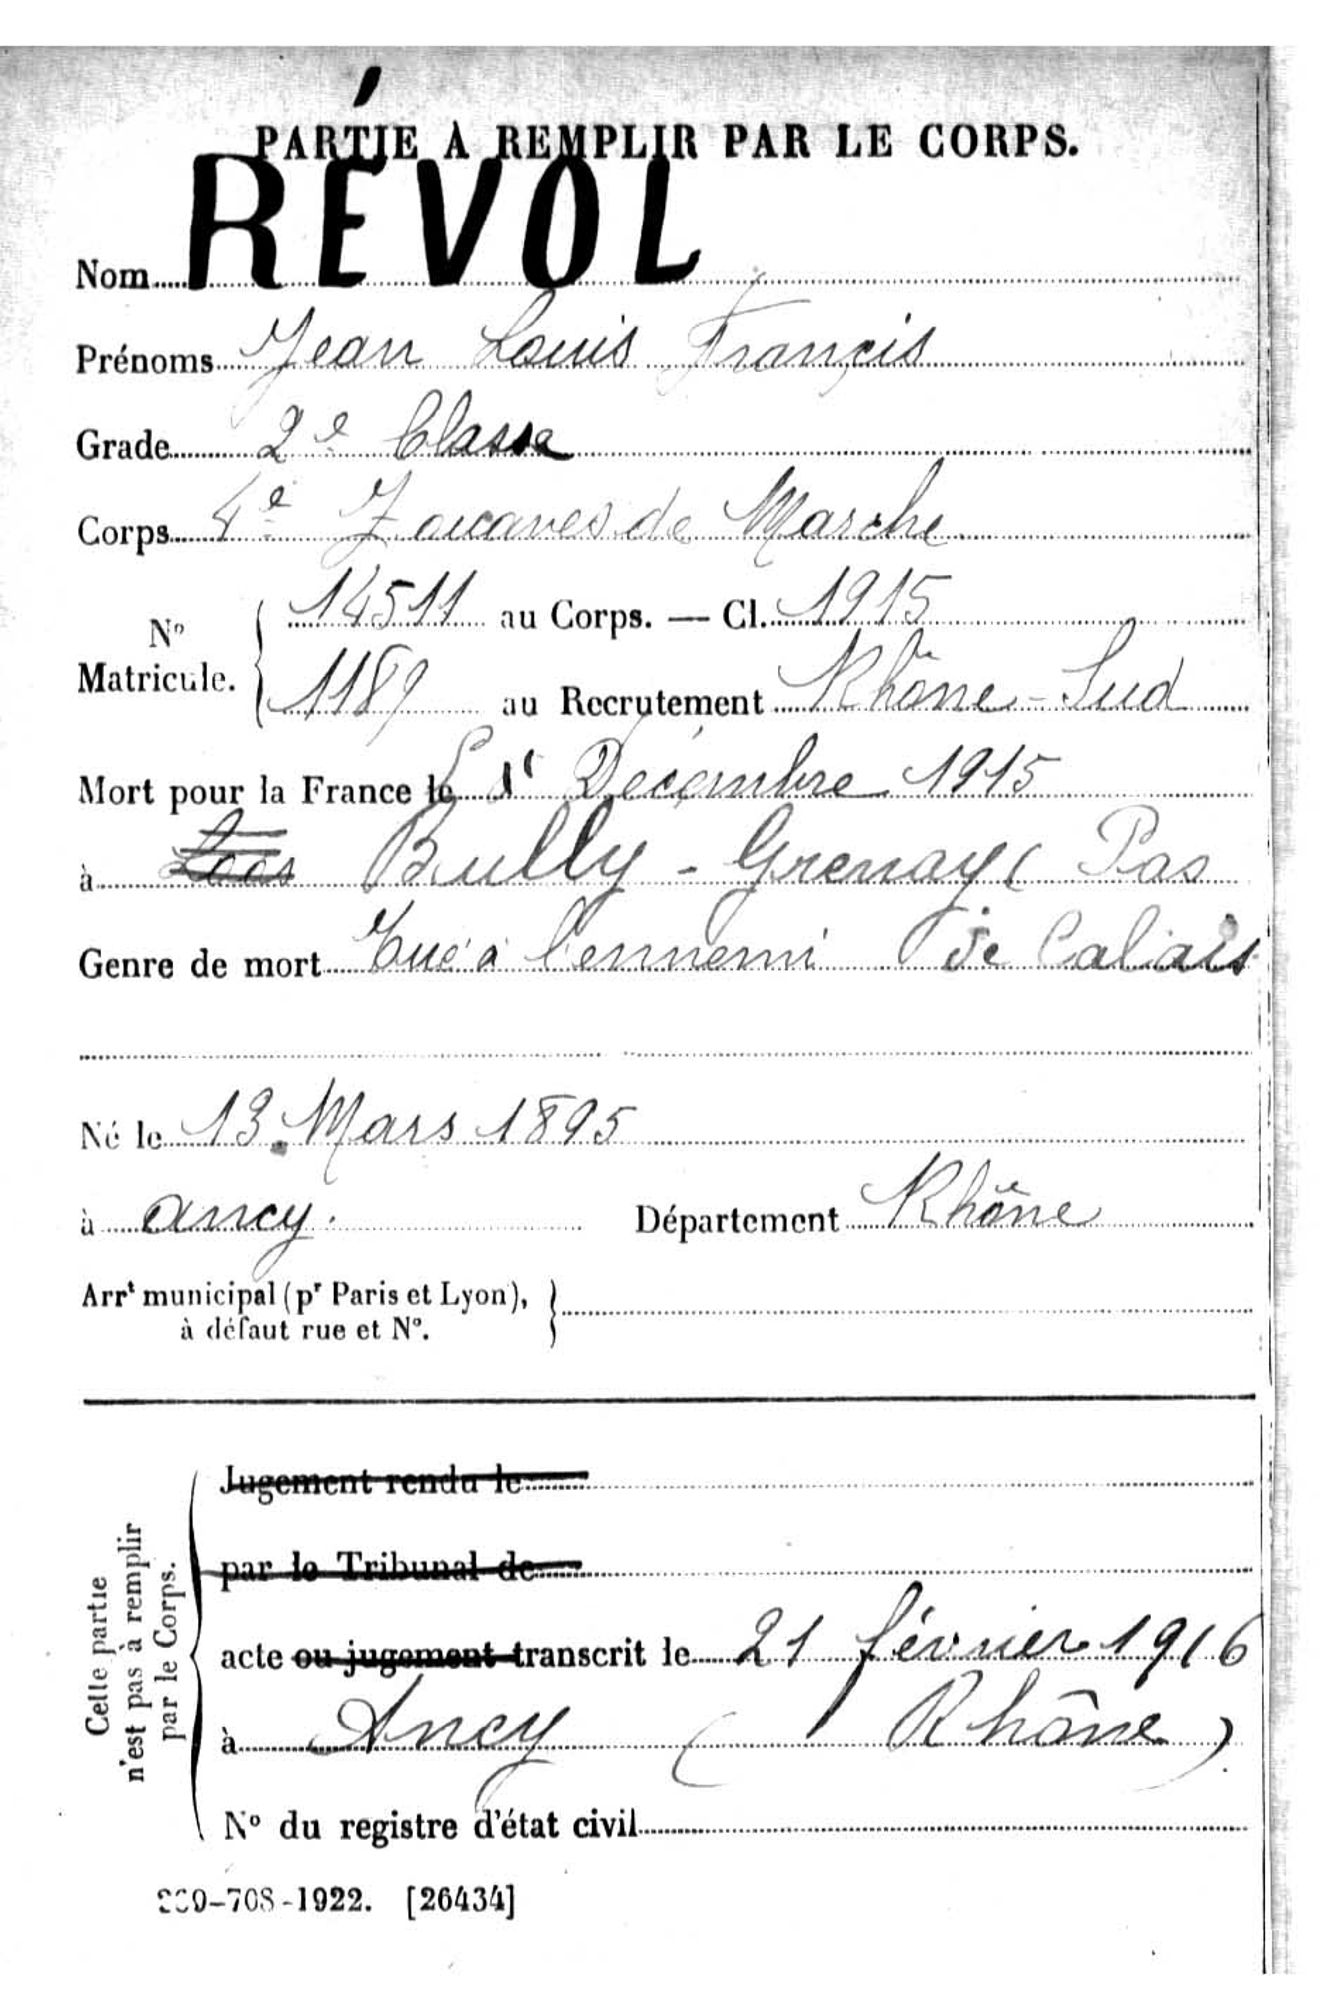 PARTIE À REMPLIR PAR LE CORPS.
Nom RÉVOL
Prénoms Jean Louis Françis
Grade 2e Classe
Corps 4e Zouaves de Marche
No Matricule. 14511 au Corps. — Cl. 1915
1189 au Recrutement Rhône-Sud
Mort pour la France le 1er Décembre 1915
à Loos Bully-Grenay (Pas
Genre de mort Tué à l'ennemi de Calais
Né le 13 Mars 1895
à ancy. Département Rhône
Arrt municipal (pr Paris et Lyon),
à défaut rue et No.
Jugement rendu le
par le Tribunal de
acte ou jugement transcrit le 21 février 1916
à Ancy (Rhône)
No du registre d'état civil
Celle partie
n'est pas à remplir
par le Corps.
-708-1922. [26434]